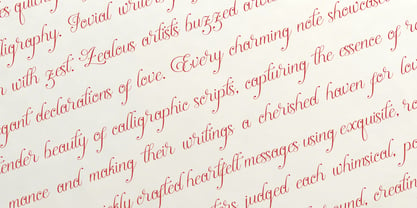 es quickly
lligraphy. Jovial write
with zest. Zealous artists buzzed
gant declarations of love. Every charming note showcased
ender beauty of calligraphic scripts, capturing the essence of
mance and making their writings a cherished haven for
crafted heartfelt messages using exquisite,
judged each whimsical,